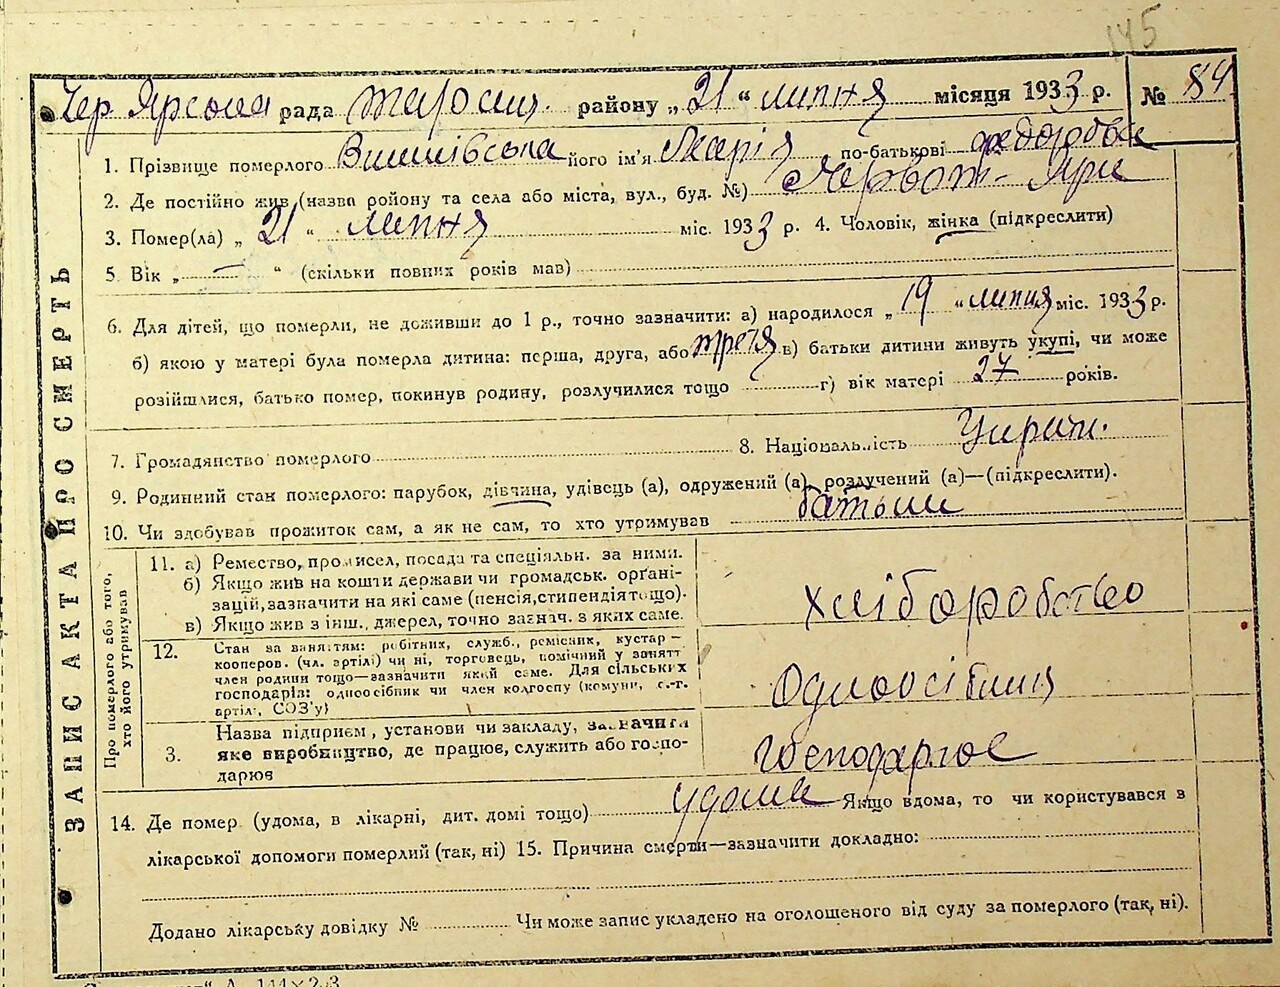 145
Чер Ярська рада район у „ 21 “ липня місяця 1933 р. № 84
1. Прізвище померлого Вишнівська його ім'я Марія по-батькові Федоровна
2. Де постійно жив (назва району та села або міста, вул., буд. №) Червон- Яри
3. Помер(ла) „ 21 “ липня міс. 1933 р. 4. Чоловік, жінка (підкреслити)
5 Вік „ — “ (скільки повних років мав)
6. Для дітей, що померли, не доживши до 1 р., точно зазначити: а) народилося „ 19 “ липня міс. 1933 р.
б) якою у матері була померла дитина: перша, друга, або третя в) батьки дитини живуть укупі, чи може
розійшлися, батько помер, покинув родину, розлучилися тощо г) вік матері 27 років.
7. Громадянство померлого 8. Національність Україн.
9. Родинний стан померлого: парубок, дівчина, удівець (а), одружений (а), розлучений (а)—(підкреслити).
10. Чи здобував прожиток сам, а як не сам, то хто утримував батьки
ЗАПИС АКТА ПРО СМЕРТЬ
Про померлого або того,
хто його утримував
11. а) Ремество, промисел, посада та спеціяльн. за ними.
б) Якщо жив на кошти держави чи громадськ. орґані-
зацій, зазначити на які саме (пенсія, стипендія тощо).
в) Якщо жив з інш. джерел, точно зазнач. з яких саме.
хліборобство
12. Стан за заняттям: робітник, служб., ремісник, кустар—
кооперов. (чл. артілі) чи ні, торговець, помічний у занятт
член родини тощо—зазначити який саме. Для сільських
господарів: одноосібник чи член колгоспу (комуни, с.-г.
артілі, СОЗ'у)
Одноосібник
3. Назва підприєм, установи чи закладу, зазначити
яке виробництво, де працює, служить або госпо-
дарює
господарює
14. Де помер (удома, в лікарні, дит. домі тощо) удома Якщо вдома, то чи користувався в
лікарської допомоги померлий (так, ні) 15. Причина смерти—зазначити докладно:
Додано лікарську довідку № Чи може запис укладено на оголошеного від суду за померлого (так, ні).